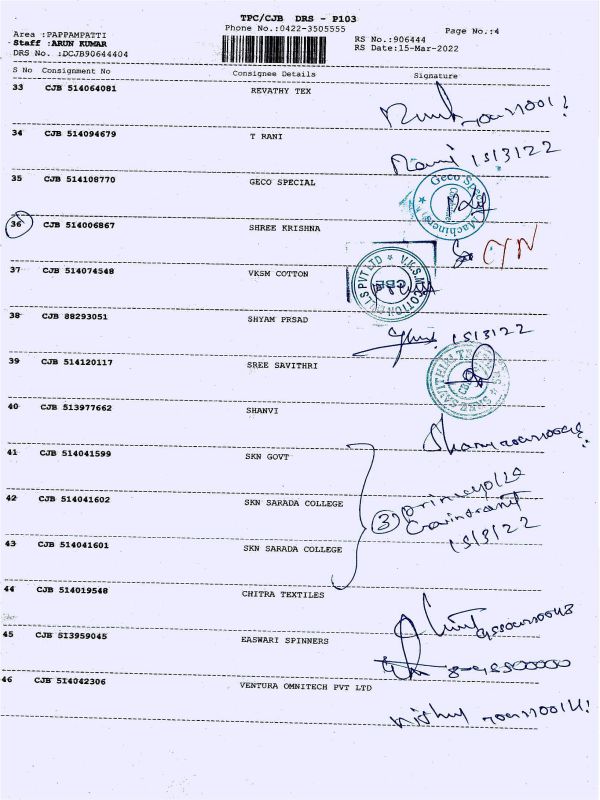 TPC/CJB DRS - P103
Phone No.:0422-3505555
Page No.:4
Area :PAPPAMPATTI
Staff :ARUN KUMAR
DRS No. :DCJB90644404
RS No.:906444
RS Date:15-Mar-2022
S No Consignment No Consignee Details Signature
33 CJB 514064081 REVATHY TEX
34 CJB 514094679 T RANI
Rani 15/3/22
35 CJB 514108770 GECO SPECIAL
Geco Special Machinery
36 CJB 514006867 SHREE KRISHNA
37 CJB 514074548 VKSM COTTON
V.K.S.M. COTTON MILLS PVT LTD
CBE
38 CJB 88293051 SHYAM PRSAD
15/3/22
39 CJB 514120117 SREE SAVITHRI
40 CJB 513977662 SHANVI
41 CJB 514041599 SKN GOVT
42 CJB 514041602 SKN SARADA COLLEGE
3
15/3/22
43 CJB 514041601 SKN SARADA COLLEGE
44 CJB 514019548 CHITRA TEXTILES
45 CJB 513959045 EASWARI SPINNERS
46 CJB 514042306 VENTURA OMNITECH PVT LTD